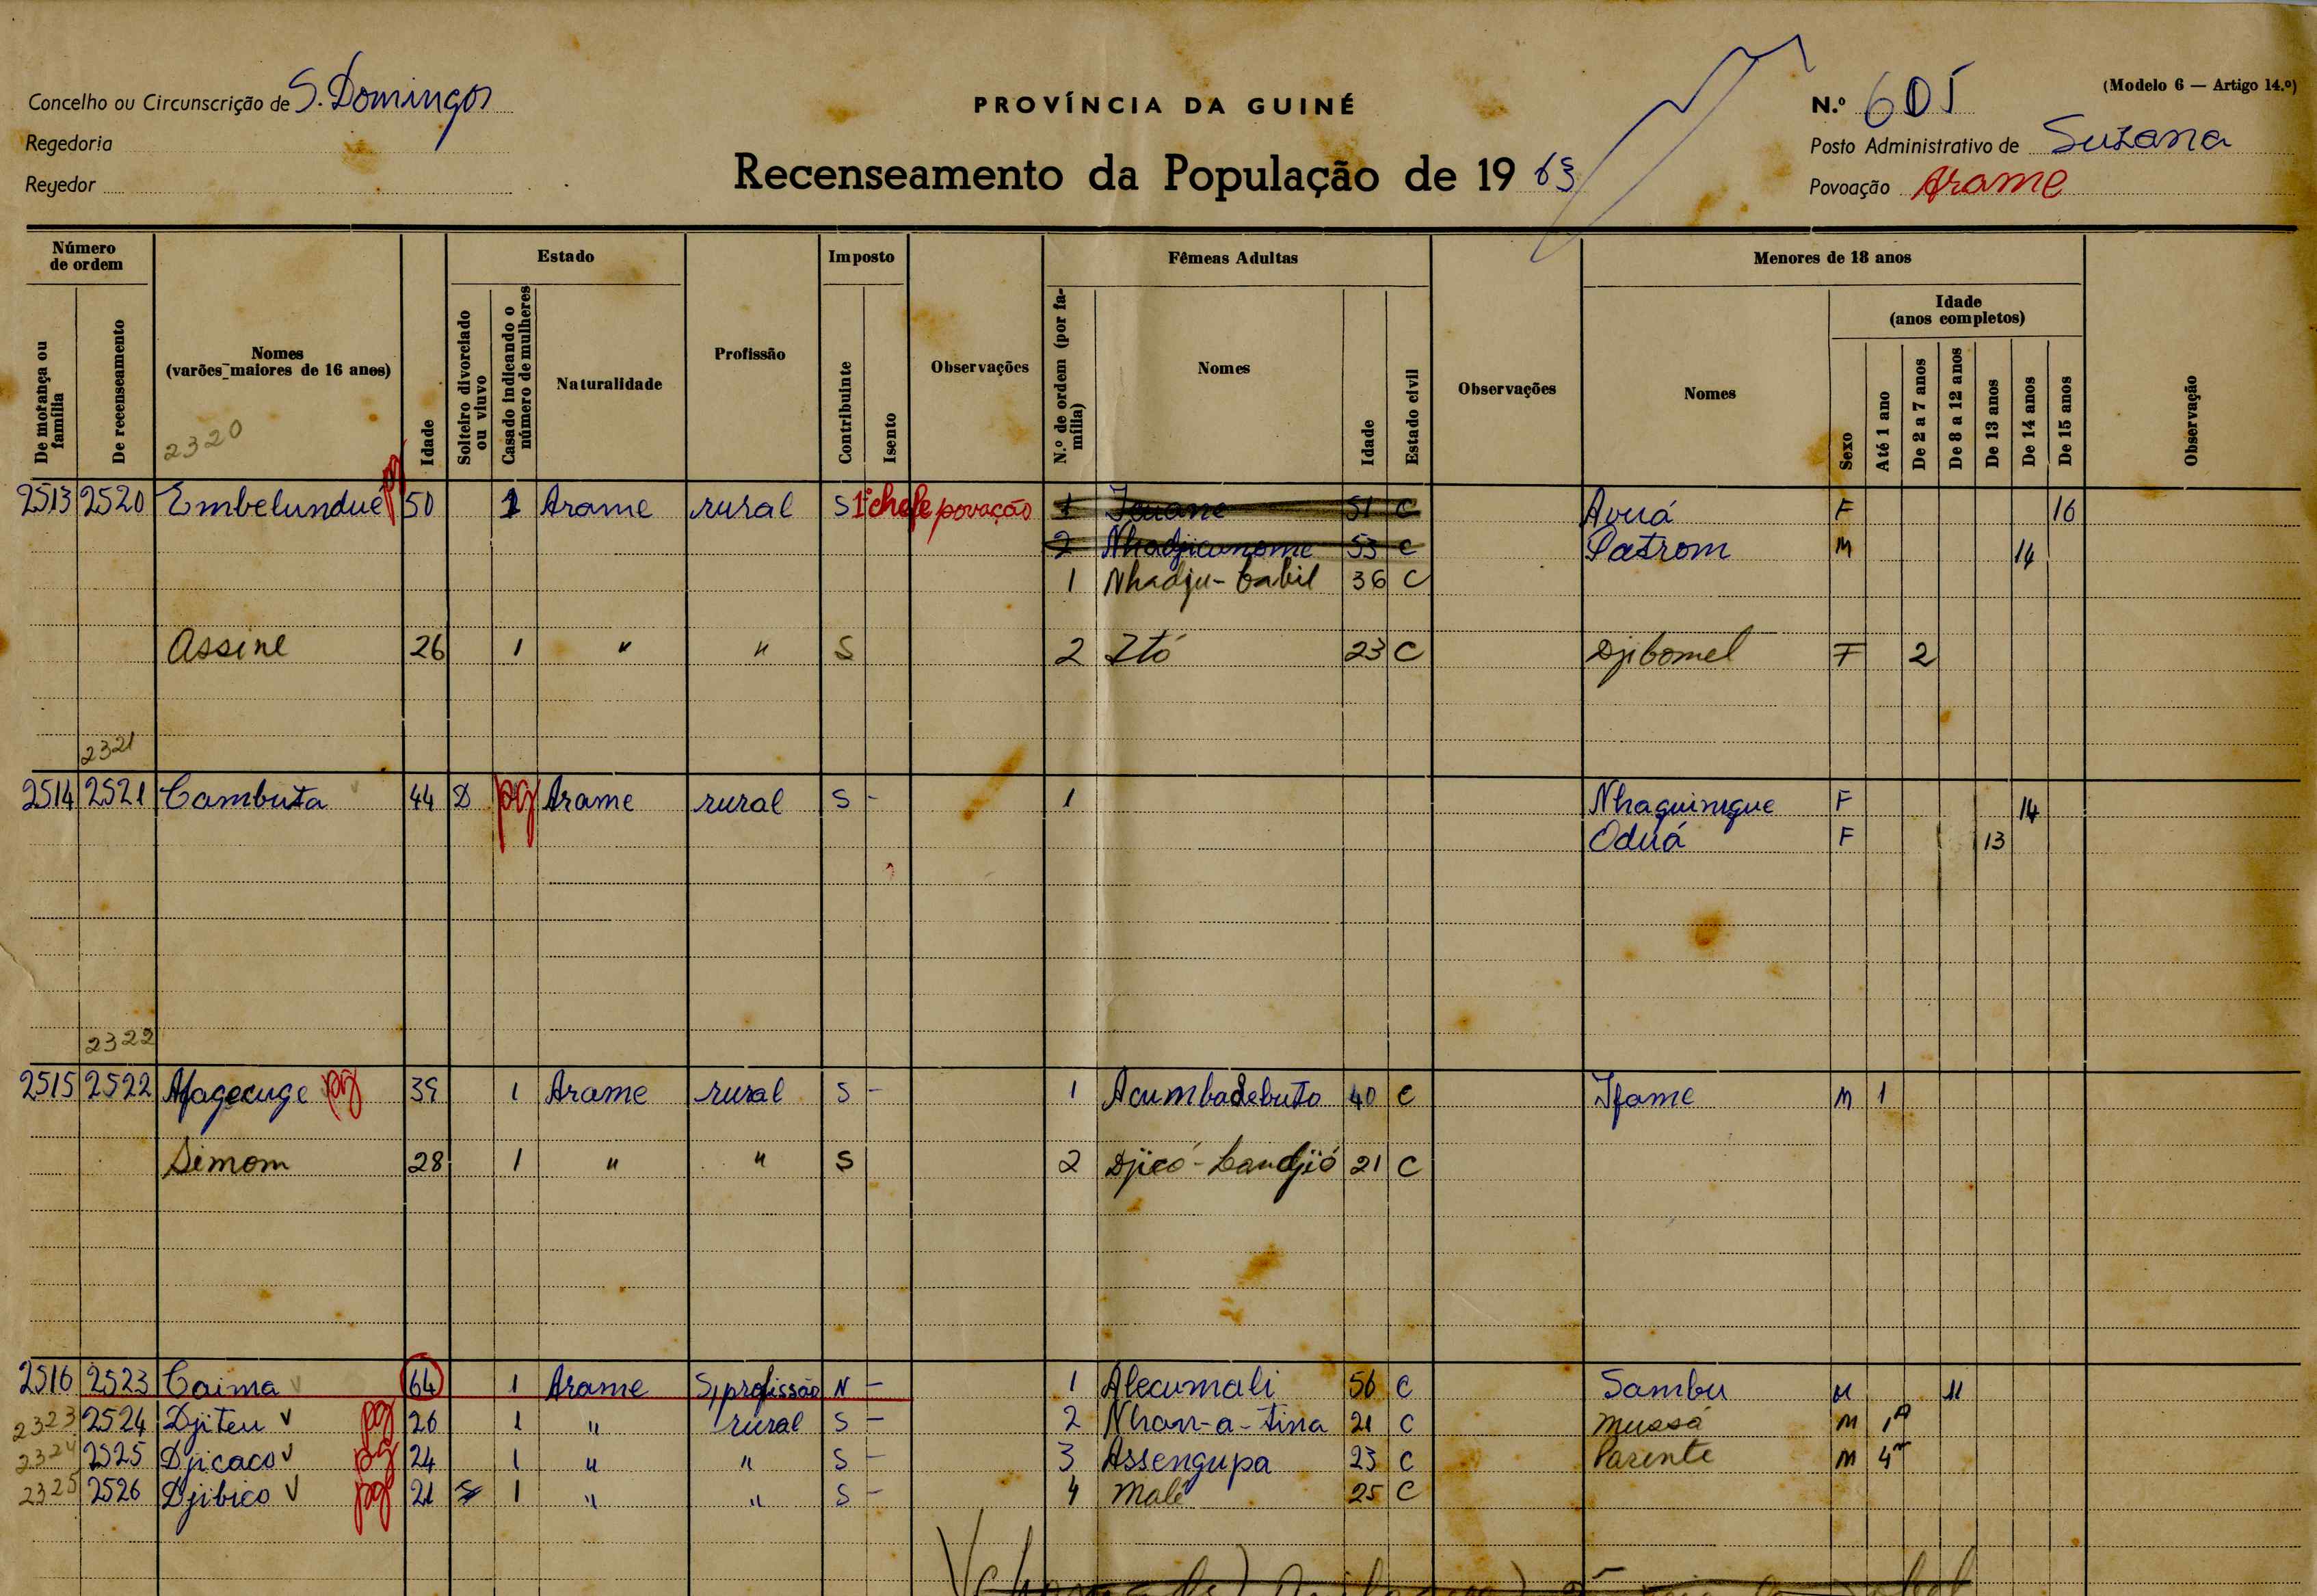 Concelho ou Circunscrição de S. Domingos
Regedoria
Regedor
PROVÍNCIA DA GUINÉ
Recenseamento da População de 19 63
(Modelo 6 — Artigo 14.º)
N.º 605
Posto Administrativo de Suzana
Povoação Arame
Número de ordem
De morança ou família
De recenseamento
Nomes
(varões maiores de 16 anos)
2320
Idade
Estado
Solteiro divorciado ou viuvo
Casado indicando o número de mulheres
Naturalidade
Profissão
Imposto
Contribuinte
Isento
Observações
Fêmeas Adultas
N.º de ordem (por família)
Nomes
Idade
Estado civil
Observações
Menores de 18 anos
Nomes
Sexo
Idade
(anos completos)
Até 1 ano
De 2 a 7 anos
De 8 a 12 anos
De 13 anos
De 14 anos
De 15 anos
Observação
2513 2520 Embelundué pg 50 1 Arame rural S 1º chefe povoação 1 51 C Avuá F 16
2 Nhadjicunome 53 C Patrom M 14
1 Nhadju-babil 36 C
Assine 26 1 " " S 2 Itó 23 C Djibomel F 2
2321
2514 2521 Cambuta 44 D pg Arame rural S - 1 Nhaguinigue F 14
Oduá F 13
2322
2515 2522 Afagecuge pg 39 1 Arame rural S - 1 Acumbadebuto 40 C Ifame M 1
Simom 28 1 " " S 2 Djicó-bandjió 21 C
2516 2523 Caima 64 1 Arame S/profissão N - 1 Alecumali 56 C Sambu M 11
2323 2524 Djiteu pg 26 1 " rural S - 2 Nhan-a-tina 21 C Mussá M 1ª
2324 2525 Djicaco pg 24 1 " " S - 3 Assengupa 23 C Parente M 4m
2325 2526 Djibico pg 21 S 1 " " S - 4 Malé 25 C